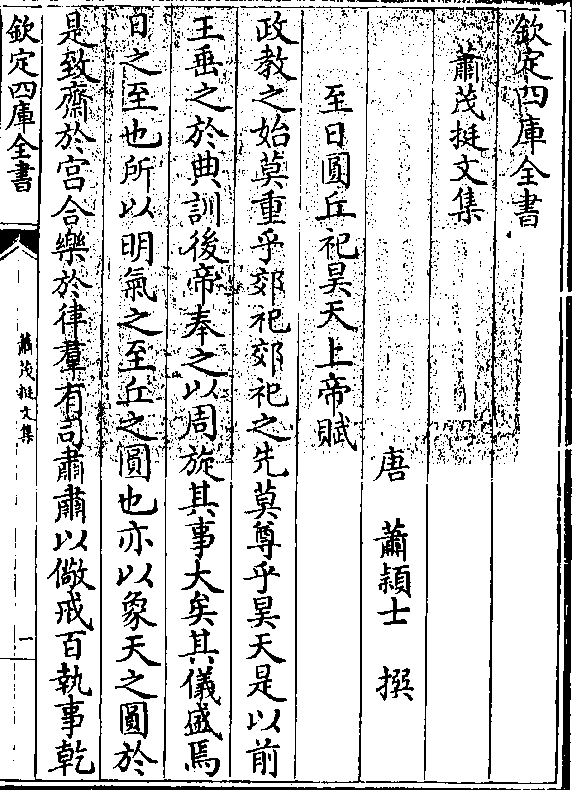 欽定四庫全書
蕭茂挺文集
唐 蕭頴士 撰
至日圓丘祀昊天上帝賦
政教之始莫重乎郊祀郊祀之先莫尊乎昊天是以前
王垂之於典訓後帝奉之以周旋其事大矣其儀盛焉
日之至也所以明氣之至丘之圓也亦以象天之圓於
是致齋於宫合樂於律羣有司肅肅以儆戒百執事乾
欽定四庫全書
蕭茂挺文集
一